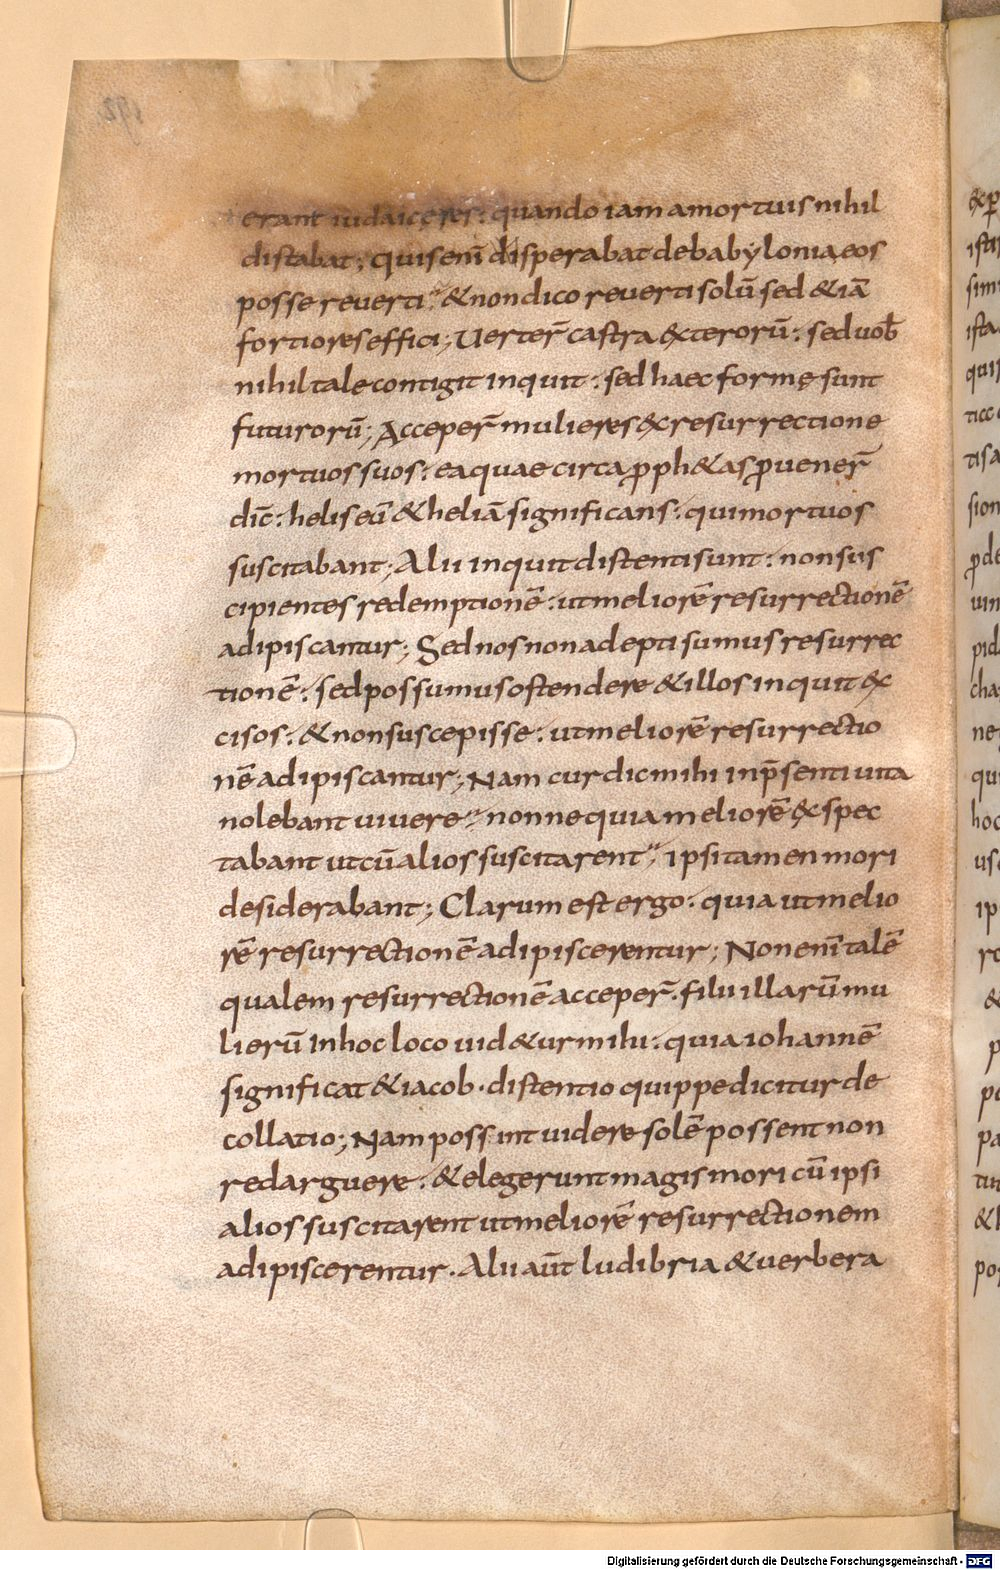 erant iudaicę res: quando iam a mortuis nihil
distabat; quis enī disperabat de babyloniạ eos
posse reverti? & non dico reverti solū sed & iā
fortiores effici; Uerter̄ castra exterorū: sed vob̄
nihil tale contigit inquit: sed haec formę sunt
futurorū; Acceper̄ mulieres ex resurrectione
mortuos suos: ea quae circa ꝓph&as ꝓvener̄
dic̄: heliseū & heliā significans: qui mortuos
suscitabant; Alii inquit distenti sunt: non sus
cipientes redemptionē: ut meliorē resurrectionē
adipiscantur; Sed nos non adepti sumus resurrec
tionē: sed possumus ostendere & illos inquit ex
cisos: & non suscepisse: ut meliorē resurrectio
nē adipiscantur; Nam cur dic mihi in p̄senti vita
nolebant vivere? nonne quia meliorē exspec
tabant ut cū alios suscitarent? ipsi tamen mori
desiderabant; Clarum est ergo: quia ut melio
rē resurrectionē adipiscerentur; Non enī talē
qualem resurrectionē acceper̄. filii illarū mu
lierū In hoc loco vid&ur mihi: quia iohannē
significat & iacob. distentio quippe dicitur de
collatio; Nam possint videre solē possent non
redarguere. & elegerunt magis mori cū ipsi
alios suscitarent ut meliorē resurrectionem
adipiscerentur. Alii aūt ludibria & verbera
192.
Digitalisierung gefördert durch die Deutsche Forschungsgemeinschaft - DFG